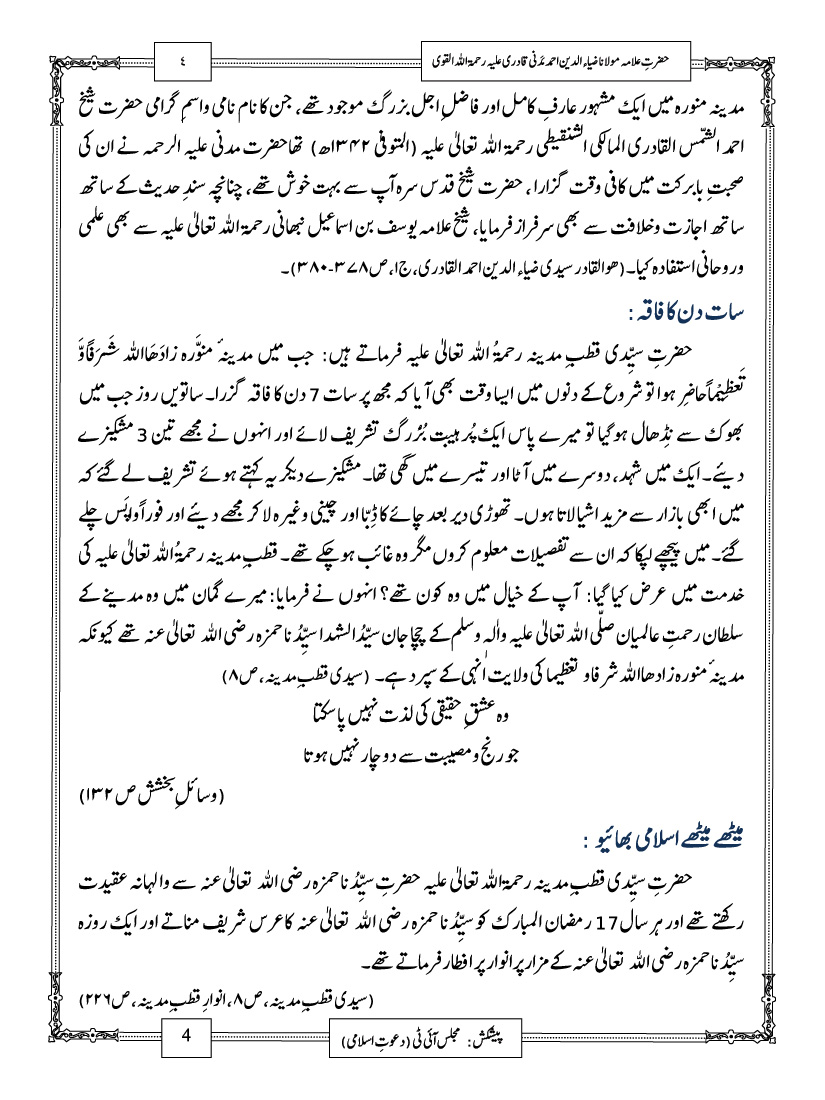 ٤
حضرتِ علامہ مولانا ضیاء الدین احمد مَدَنی قادری علیہ رحمۃ اللہ القوی
مدینہ منورہ میں ایک مشہور عارفِ کامل اور فاضلِ اجل بزرگ موجود تھے، جن کا نام نامی واسمِ گرامی حضرت شیخ
احمد الشّمس القادری المالکی الشنقیطی رحمۃ اللہ تعالیٰ علیہ (المتوفی ۱۳۴۲ھ) تھا حضرت مدنی علیہ الرحمہ نے ان کی
صحبتِ بابرکت میں کافی وقت گزارا، حضرت شیخ قدس سرہ آپ سے بہت خوش تھے، چنانچہ سندِ حدیث کے ساتھ
ساتھ اجازت وخلافت سے بھی سرفراز فرمایا، شیخ علامہ یوسف بن اسماعیل نبھانی رحمۃ اللہ تعالیٰ علیہ سے بھی علمی
وروحانی استفادہ کیا۔ (ھو القادر سیدی ضیاء الدین احمد القادری، ج۱، ص۳۷۸-۳۸۰)۔
سات دن کا فاقہ :
حضرتِ سیِّدی قطبِ مدینہ رحمۃُ اللہ تعالیٰ علیہ فرماتے ہیں: جب میں مدینہ ٔ منوَّرہ زادَھَا اللہ شَرَفًاوَّ
تَعظِیْمًا حاضِر ہوا تو شروع کے دنوں میں ایسا وقت بھی آیا کہ مجھ پر سات 7 دن کا فاقہ گزرا۔ ساتویں روز جب میں
بھوک سے نِڈھال ہوگیا تو میرے پاس ایک پُر ہیبت بُزُرگ تشریف لائے اور انہوں نے مجھے تین 3 مشکیزے
دیئے۔ ایک میں شہد، دوسرے میں آٹا اور تیسرے میں گھی تھا۔ مشکیزے دیکر یہ کہتے ہوئے تشریف لے گئے کہ
میں ابھی بازار سے مزید اشیا لاتا ہوں۔ تھوڑی دیر بعد چائے کا ڈِبّا اور چینی وغیرہ لا کر مجھے دیئے اور فوراً واپَس چلے
گئے۔ میں پیچھے لپکا کہ ان سے تفصیلات معلوم کروں مگر وہ غائب ہوچکے تھے۔ قطبِ مدینہ رحمۃُ اللہ تعالیٰ علیہ کی
خدمت میں عرض کیا گیا: آپ کے خیال میں وہ کون تھے؟ انہوں نے فرمایا: میرے گمان میں وہ مدینے کے
سلطان رحمتِ عالمیان صلَّی اللہ تعالیٰ علیہ والہٖ وسلم کے چچا جان سیّدُ الشہدا سیِّدُنا حمزہ رضی اللہ تعالیٰ عنہ تھے کیونکہ
مدینہ ٔ منورہ زادھا اللہ شرفاو تعظیما کی ولایت اُنہی کے سپرد ہے۔ (سیدی قطبِ مدینہ، ص۸)
وہ عشقِ حقیقی کی لذت نہیں پا سکتا
جو رنج و مصیبت سے دوچار نہیں ہوتا
(وسائلِ بخشش ص۱۳۲)
میٹھے میٹھے اسلامی بھائیو :
حضرتِ سیِّدی قطبِ مدینہ رحمۃ اللہ تعالیٰ علیہ حضرتِ سیِّدُنا حمزہ رضی اللہ تعالیٰ عنہ سے والہانہ عقیدت
رکھتے تھے اور ہر سال 17 رمضان المبارک کو سیِّدُنا حمزہ رضی اللہ تعالیٰ عنہ کا عرس شریف مناتے اور ایک روزہ
سیِّدُنا حمزہ رضی اللہ تعالیٰ عنہ کے مزار پر انوار پر افطار فرماتے تھے۔
(سیدی قطبِ مدینہ، ص۸، انوارِ قطبِ مدینہ، ص۲۲٦)
پیشکش : مجلس آئی ٹی (دعوتِ اسلامی)
4